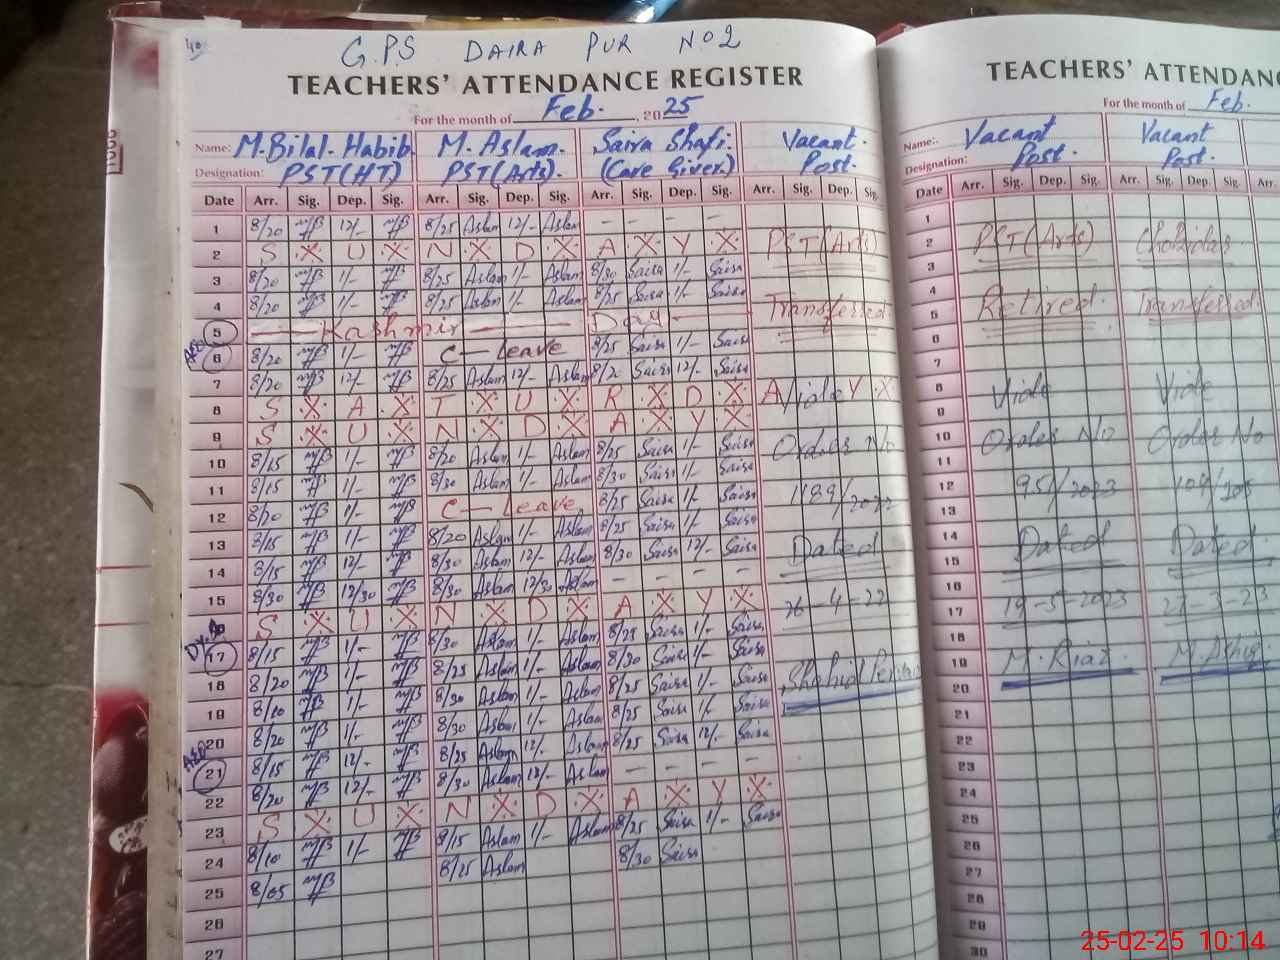 G.P.S DAIRA PUR No 2
TEACHERS' ATTENDANCE REGISTER
For the month of Feb. , 2025
Name: M.Bilal Habib M. Aslam. Saira Shafi. Vacant
Designation: PST(HT) PST(Arts). (Care Giver.) Post.
Date Arr. Sig. Dep. Sig. Arr. Sig. Dep. Sig. Arr. Sig. Dep. Sig. Arr. Sig. Dep. Sig.
1 8/20 12/- 8/25 Aslam 12/- Aslam - - - -
2 S X U X N X D X A X Y X PST(Arts)
3 8/20 1/- 8/25 Aslam 1/- Aslam 8/30 Saira 1/- Saira
4 8/20 1/- 8/25 Aslam 1/- Aslam 8/25 Saira 1/- Saira
5 Kashmir Day Transferred.
6 8/20 1/- C - Leave 8/25 Saira 1/- Saira
7 8/20 12/- 8/25 Aslam 12/- Aslam 8/20 Saira 12/- Saira
8 S X A X T X U X R X D X A Y X Vide
9 S X U X N X D X A X Y X
10 8/15 1/- 8/20 Aslam 1/- Aslam 8/25 Saira 1/- Saira Order No
11 8/15 1/- 8/30 Aslam 1/- Aslam 8/30 Saira 1/- Saira
12 8/20 1/- C - Leave 8/25 Saira 1/- Saira 1189/2022
13 8/15 1/- 8/20 Aslam 1/- Aslam 8/25 Saira 1/- Saira
14 8/15 12/- 8/30 Aslam 12/- Aslam 8/30 Saira 12/- Saira Dated
15 8/30 12/30 8/30 Aslam 12/30 Aslam - - - -
S X U X N X D X A X Y X 26-4-22
17 8/15 1/- 8/30 Aslam 1/- Aslam 8/25 Saira 1/- Saira
18 8/20 1/- 8/25 Aslam 1/- Aslam 8/30 Saira 1/- Saira
19 8/10 1/- 8/30 Aslam 1/- Aslam 8/25 Saira 1/- Saira Shahid
20 8/20 1/- 8/30 Aslam 1/- Aslam 8/25 Saira 1/- Saira
21 8/15 12/- 8/25 Aslam 12/- Aslam 8/25 Saira 12/- Saira
22 8/20 12/- 8/30 Aslam 12/- Aslam - - - -
23 S X U X N X D X A X Y X
24 8/10 1/- 8/15 Aslam 1/- Aslam 8/25 Saira 1/- Saira
25 8/05 8/25 Aslam 8/30 Saira
26
27
TEACHERS' ATTENDANC
For the month of Feb.
Name: Vacant Vacant
Designation: Post. Post.
Date Arr. Sig. Dep. Sig. Arr. Sig. Dep. Sig. Arr.
1
2 PST(Arts)
3
4
5 Retired. Transferred.
6
7
8 Vide Vide
9
10 Order No Order No
11
12 951/2023
13
14 Dated Dated.
15
16
17 19-5-2023 27-3-23
18
19 M. Riaz
20
21
22
23
24
25
26
27
28
29
30
25-02-25 10:14